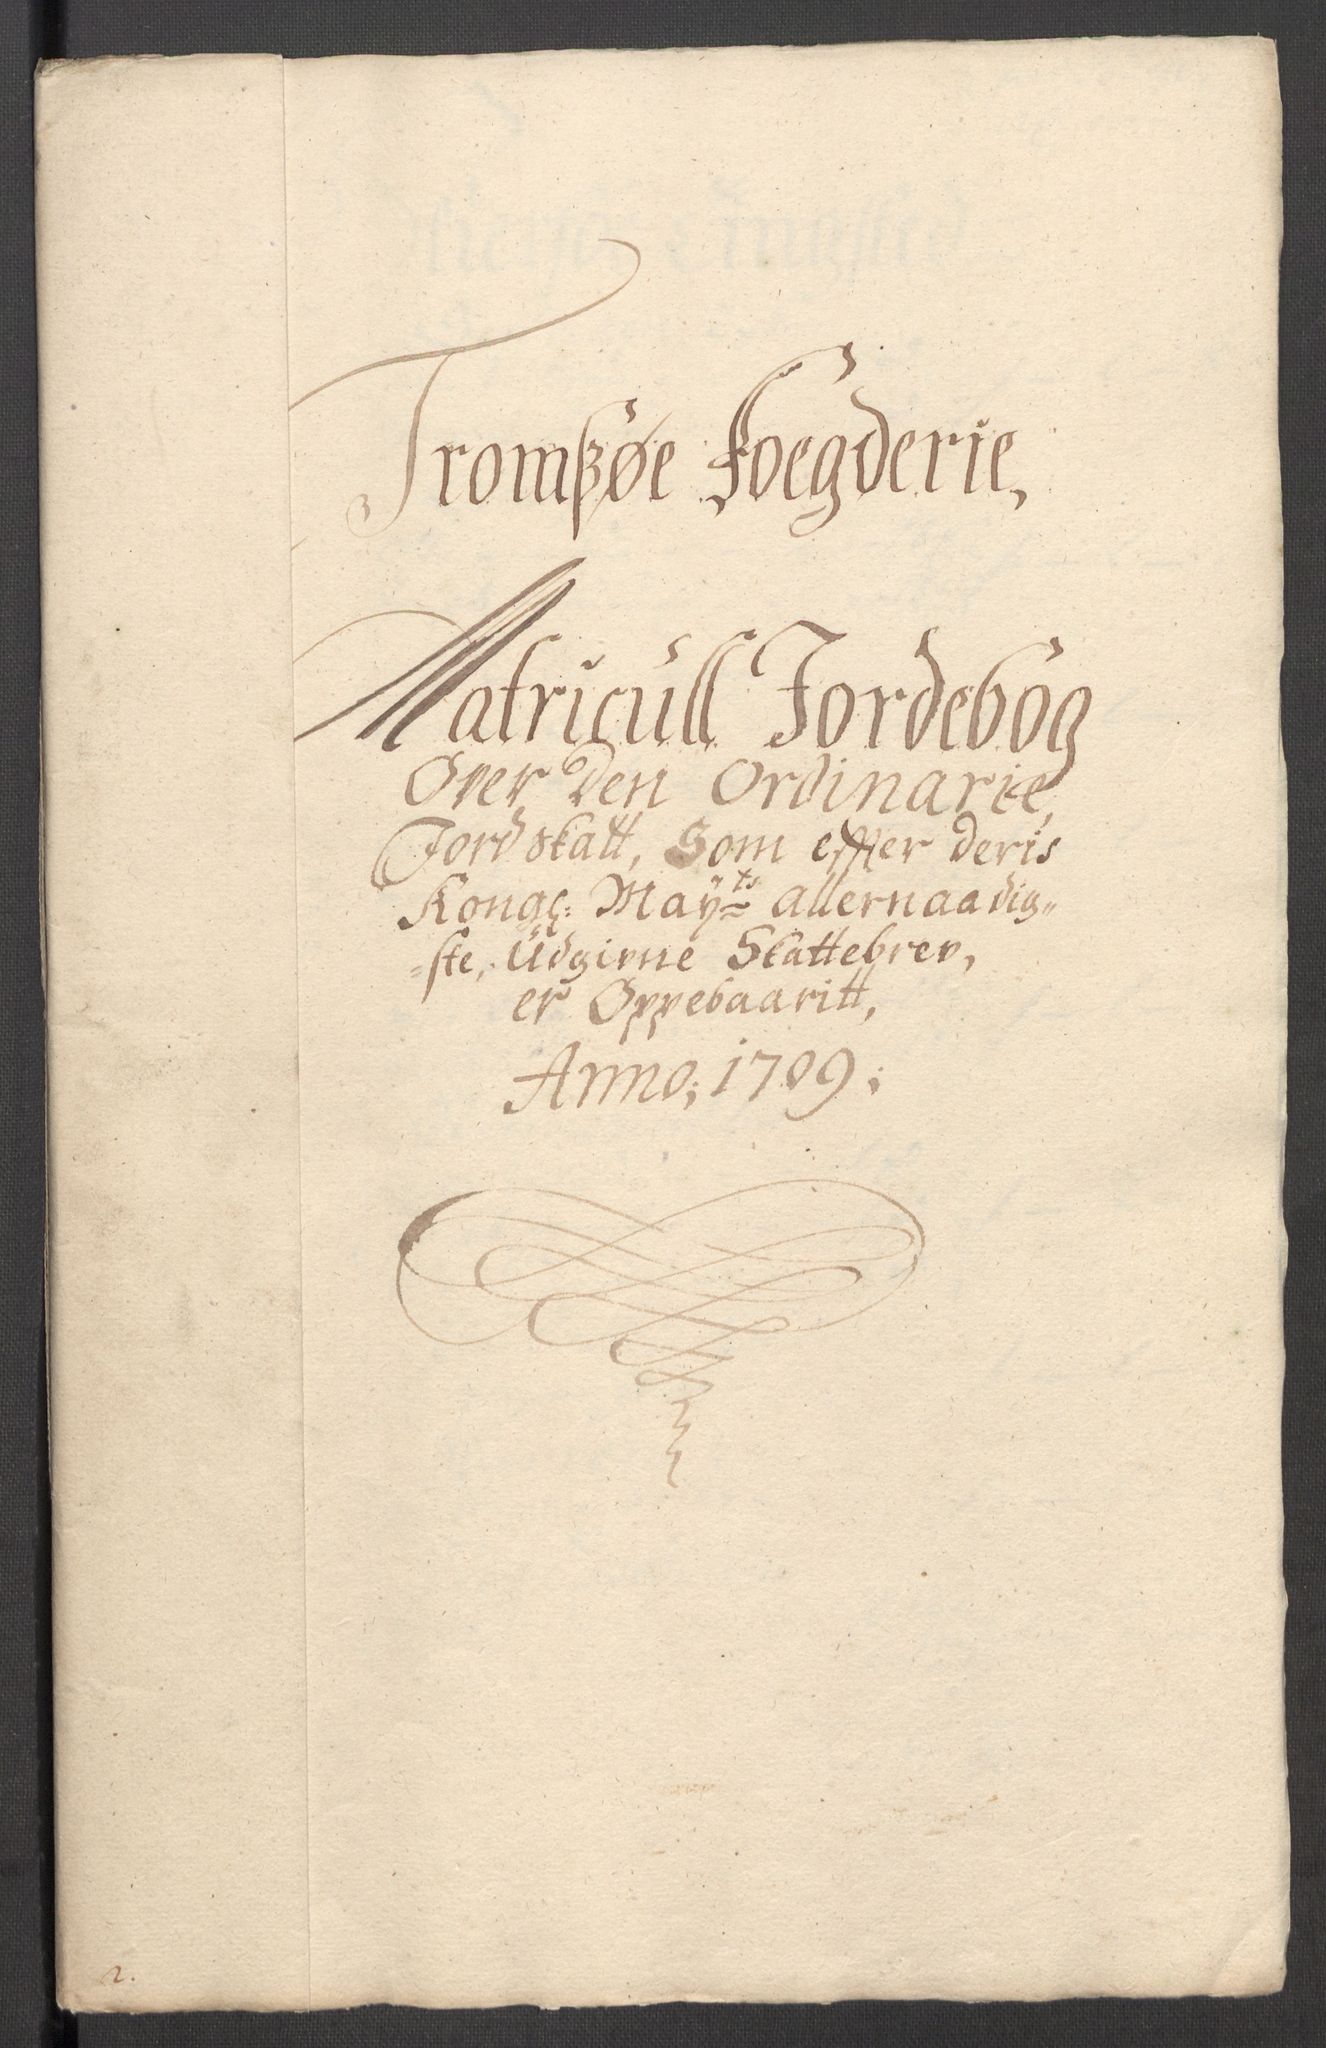 Tromßøe Foegderie,
Matricull Jordebog
Over Den Ordinarie,
Jordskatt, Som effter deris
Kongl: Mayts allernaadig„
„ste, Udgivne Skattebrev,
er Oppebaaritt,
Anno; 1709;
2.